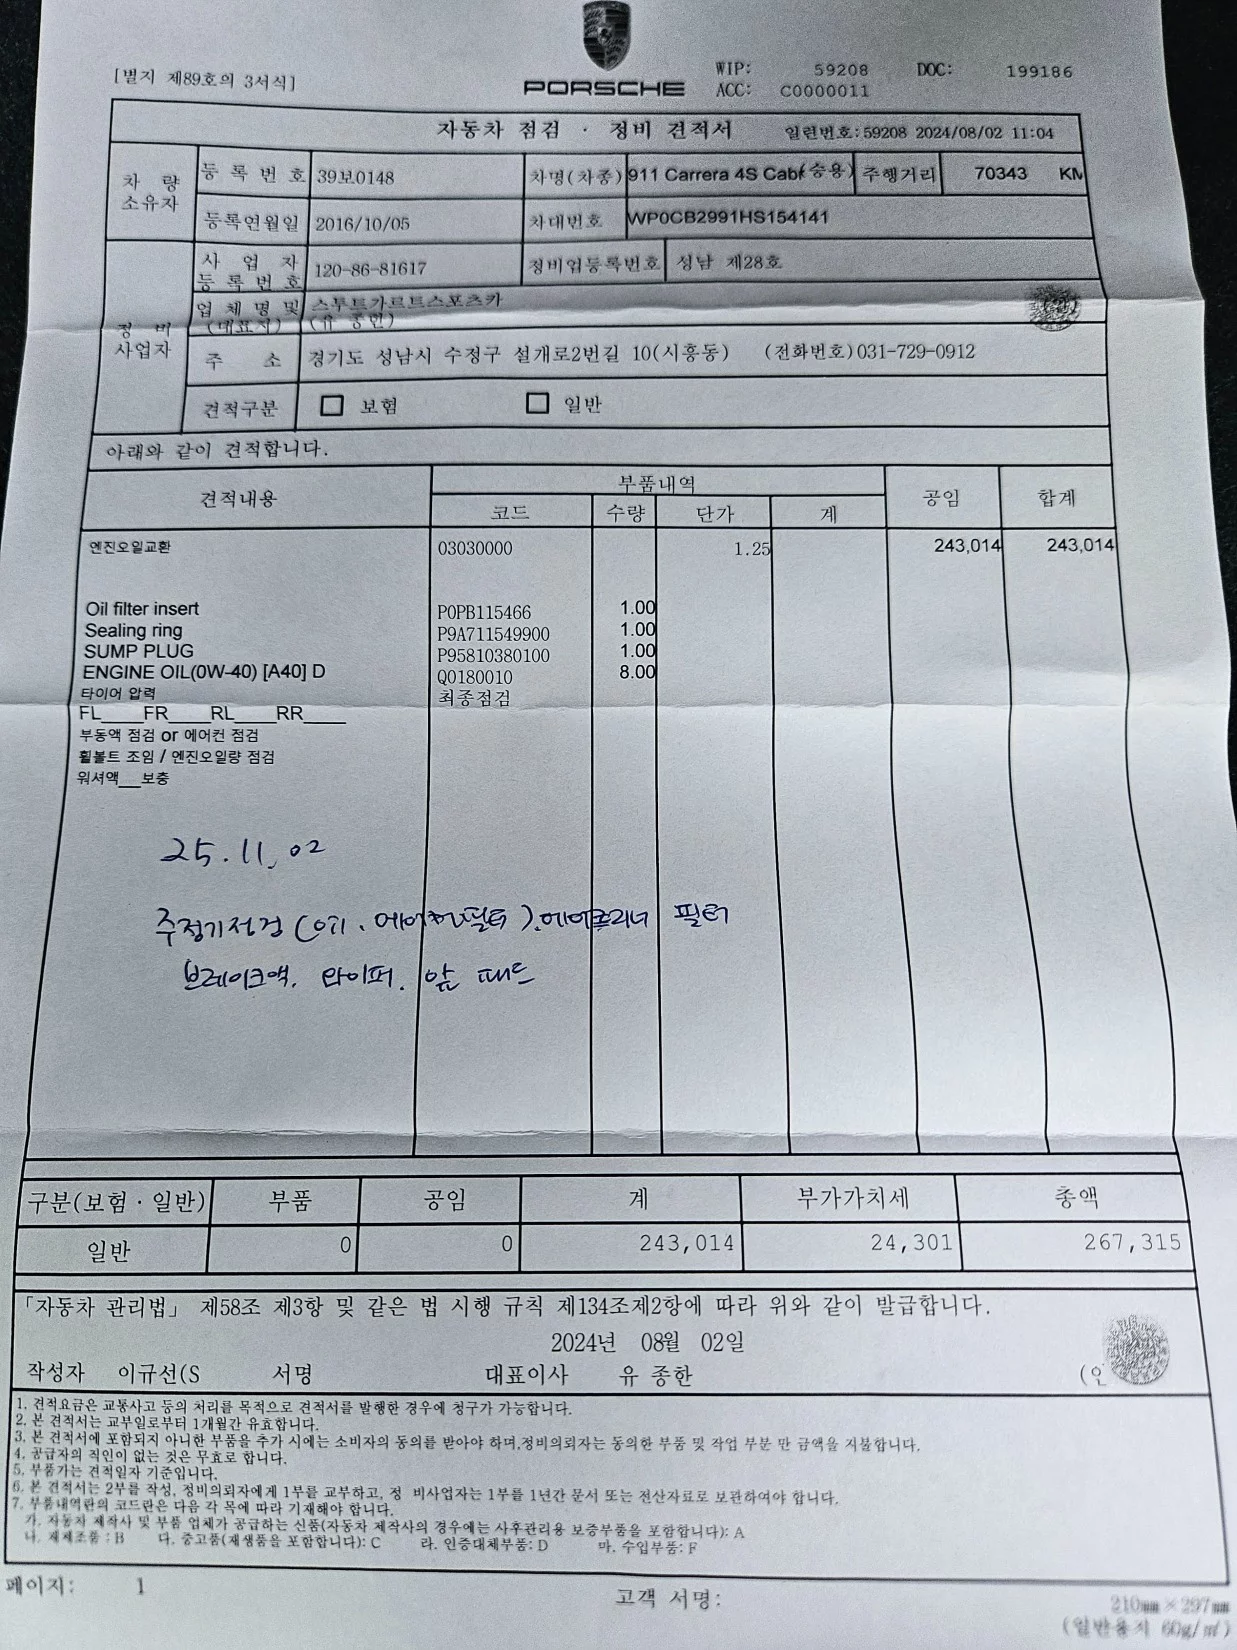 PORSCHE
[별지 제89호의 3서식]
WIP: 59208 DOC: 199186
ACC: C0000011
자동차 점검 · 정비 견적서 일련번호:59208 2024/08/02 11:04
차 량 소유자
등 록 번 호 39보0148 차명(차종) 911 Carrera 4S Cab (승용) 주행거리 70343 KM
등록연월일 2016/10/05 차대번호 WP0CB2991HS154141
정 비 사업자
사 업 자 등 록 번 호 120-86-81617 정비업등록번호 성남 제28호
업 체 명 및 (대표자) 스투트가르트스포츠카
주 소 경기도 성남시 수정구 설개로2번길 10(시흥동) (전화번호)031-729-0912
견적구분 보험 일반
아래와 같이 견적합니다.
견적내용 부품내역 공임 합계
코드 수량 단가 계
엔진오일교환 03030000 1.25 243,014 243,014
Oil filter insert P0PB115466 1.00
Sealing ring P9A711549900 1.00
SUMP PLUG P95810380100 1.00
ENGINE OIL(0W-40) [A40] D Q0180010 8.00
타이어 압력 최종점검
FL____FR____RL____RR____
부동액 점검 or 에어컨 점검
휠볼트 조임 / 엔진오일량 점검
워셔액___보충
25.11.02
주정기점검(oil. 에어컨필터).에어클리너 필터
브레이크액. 와이퍼. 앞 패드
구분(보험 · 일반) 부품 공임 계 부가가치세 총액
일반 0 0 243,014 24,301 267,315
「자동차 관리법」 제58조 제3항 및 같은 법 시행 규칙 제134조제2항에 따라 위와 같이 발급합니다.
2024년 08월 02일
작성자 이규선(S 서명 대표이사 유 종한 (인
1. 견적요금은 교통사고 등의 처리를 목적으로 견적서를 발행한 경우에 청구가 가능합니다.
2. 본 견적서는 교부일로부터 1개월간 유효합니다.
3. 본 견적서에 포함되지 아니한 부품을 추가 시에는 소비자의 동의를 받아야 하며,정비의뢰자는 동의한 부품 및 작업 부분 만 금액을 지불합니다.
4. 공급자의 직인이 없는 것은 무효로 합니다.
5. 부품가는 견적일자 기준입니다.
6. 본 견적서는 2부를 작성, 정비의뢰자에게 1부를 교부하고, 정 비사업자는 1부를 1년간 문서 또는 전산자료로 보관하여야 합니다.
7. 부품내역란의 코드란은 다음 각 목에 따라 기재해야 합니다.
가. 자동차 제작사 및 부품 업체가 공급하는 신품(자동차 제작사의 경우에는 사후관리용 보증부품을 포함합니다): A
나. 재제조품 : B 다. 중고품(재생품을 포함합니다): C 라. 인증대체부품: D 마. 수입부품: F
페이지: 1 고객 서명:
210㎜×297㎜
(일반용지 60g/㎡)